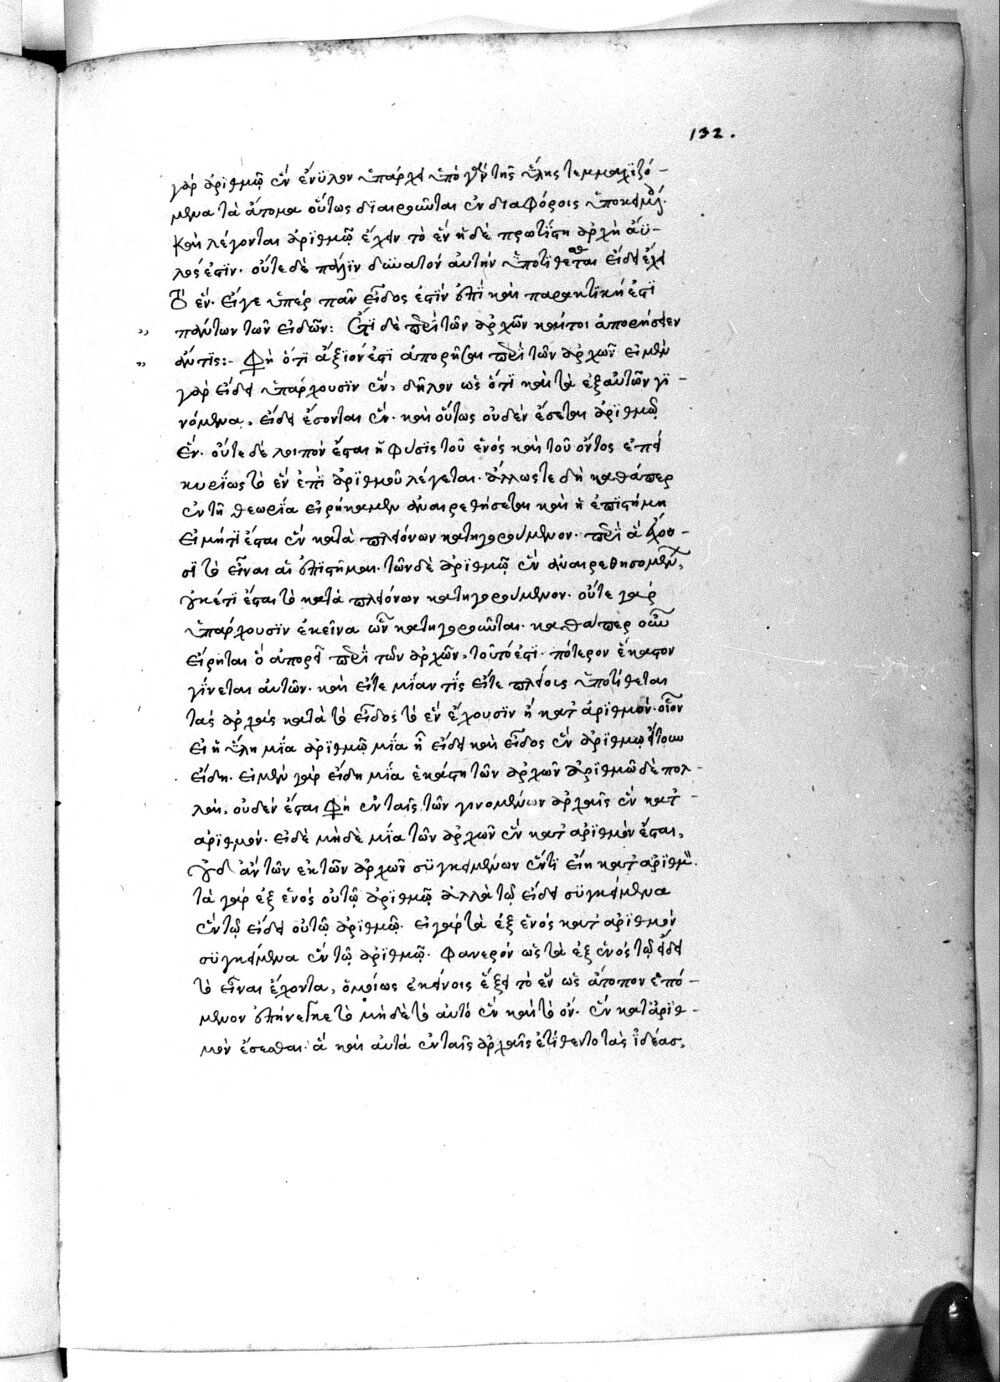 132.
γὰρ ἀριθμῷ ἓν ἔνϋλον ὑπάρχει ὑπὸ γὰρ τῆς ὕλης τεμμαχιζό-
μενα τὰ ἄτομα οὕτως διαιροῦνται ἐν διαφόροις ὑποκειμένοις.
καὶ λέγονται ἀριθμῷ ἔχειν τὸ ἓν ἡ δὲ πρωτίστη ἀρχὴ ἄϋ-
λός ἐστιν. οὔτε δὲ πάλιν δυνατὸν αὐτὴν ὑποτίθεσθαι εἴδει ἔχειν
τὸ ἕν. εἴγε ὑπὲρ πᾶν εἶδός ἐστιν ἐπεὶ καὶ παρακτική ἐστι
πάντων τῶν εἰδῶν: Ἔτι δὲ περὶ τῶν ἀρχῶν καίτοι ἀπορήσειεν
ἄν τις:- Φησὶ ὅτι ἄξιόν ἐστι ἀπορῆσαι περὶ τῶν ἀρχῶν εἰ μὲν
γὰρ εἴδει ὑπάρχουσιν ἕν, δῆλον ὡς ὅτι καὶ τὰ ἐξ αὐτῶν γι-
νόμενα, εἴδει ἔσονται ἕν. καὶ οὕτως οὐδὲν ἔσεται ἀριθμῷ
ἕν. οὔτε δὲ λοιπὸν ἔσται ἡ φύσις τοῦ ἑνὸς καὶ τοῦ ὄντος ἐπεὶ
κυρίως τὸ ἓν ἐπὶ ἀριθμοῦ λέγεται. ἄλλως τε δὴ καθάπερ
ἐν τῇ θεωρίᾳ εἰρήκαμεν ἀναιρεθήσεται καὶ ἡ ἐπιστήμη
εἰ μή τι ἔσται ἓν κατὰ πλειόνων κατηγορούμενον. περὶ ἃ ἔχου-
σι τὸ εἶναι αἱ ἐπιστῆμαι. τῶν δὲ ἀριθμῷ ἓν ἀναιρεθησομένων,
οὐκέτι ἔσται τὸ κατὰ πλειόνων κατηγορούμενον. οὔτε γὰρ
ὑπάρχουσιν ἐκεῖνα ὧν κατηγοροῦνται. καθάπερ οὖν
εἴρηται ὃ ἀπορεῖ περὶ τῶν ἀρχῶν, τοῦτό ἐστι. πότερον ἕκαστον
γίνεται αὐτῶν. καὶ εἴτε μίαν τίς εἴτε πλείους ὑποτίθεται
τὰς ἀρχὰς κατὰ τὸ εἶδος τὸ ἓν ἔχουσιν ἢ κατ' ἀριθμόν. οἷον
εἰ ἡ ὕλη μία ἀριθμῷ μία ἢ εἴδει καὶ εἶδος ἓν ἀριθμῷ ἤτοι
εἴδη. εἰ μὲν γὰρ εἴδη μία ἑκάστη τῶν ἀρχῶν ἀριθμῷ δὲ πολ-
λαί, οὐδὲν ἔσται φησὶ ἐν ταῖς τῶν γινομένων ἀρχαῖς ἓν κατ'
ἀριθμόν. εἰ δὲ μηδὲ μία τῶν ἀρχῶν ἓν κατ' ἀριθμὸν ἔσται,
οὐδ' ἂν τῶν ἐκ τῶν ἀρχῶν συγκειμένων ἕν τι εἴη κατ' ἀριθμόν.
τὰ γὰρ ἐξ ἑνὸς οὐ τῷ ἀριθμῷ ἀλλὰ τῷ εἴδει συγκείμενα
ἓν τῷ εἴδει οὐ τῷ ἀριθμῷ. εἰ γὰρ τὰ ἐξ ἑνὸς κατ' ἀριθμὸν
συγκείμενα ἓν τῷ ἀριθμῷ. φανερὸν ὡς τὰ ἐξ ἑνὸς τῷ εἴδει
τὸ εἶναι ἔχοντα, ὁμοίως ἐκείνοις ἕξει τὸ ἓν ὡς ἄτοπον ἑπό-
μενον ἐπήνεγκε τὸ μηδὲ τὸ αὐτὸ ἓν καὶ τὸ ὄν. ἓν κατ' ἀριθ-
μὸν ἔσεσθαι. ἃ καὶ αὐτὰ ἐν ταῖς ἀρχαῖς ἐτίθεντο τὰς ἰδέας,